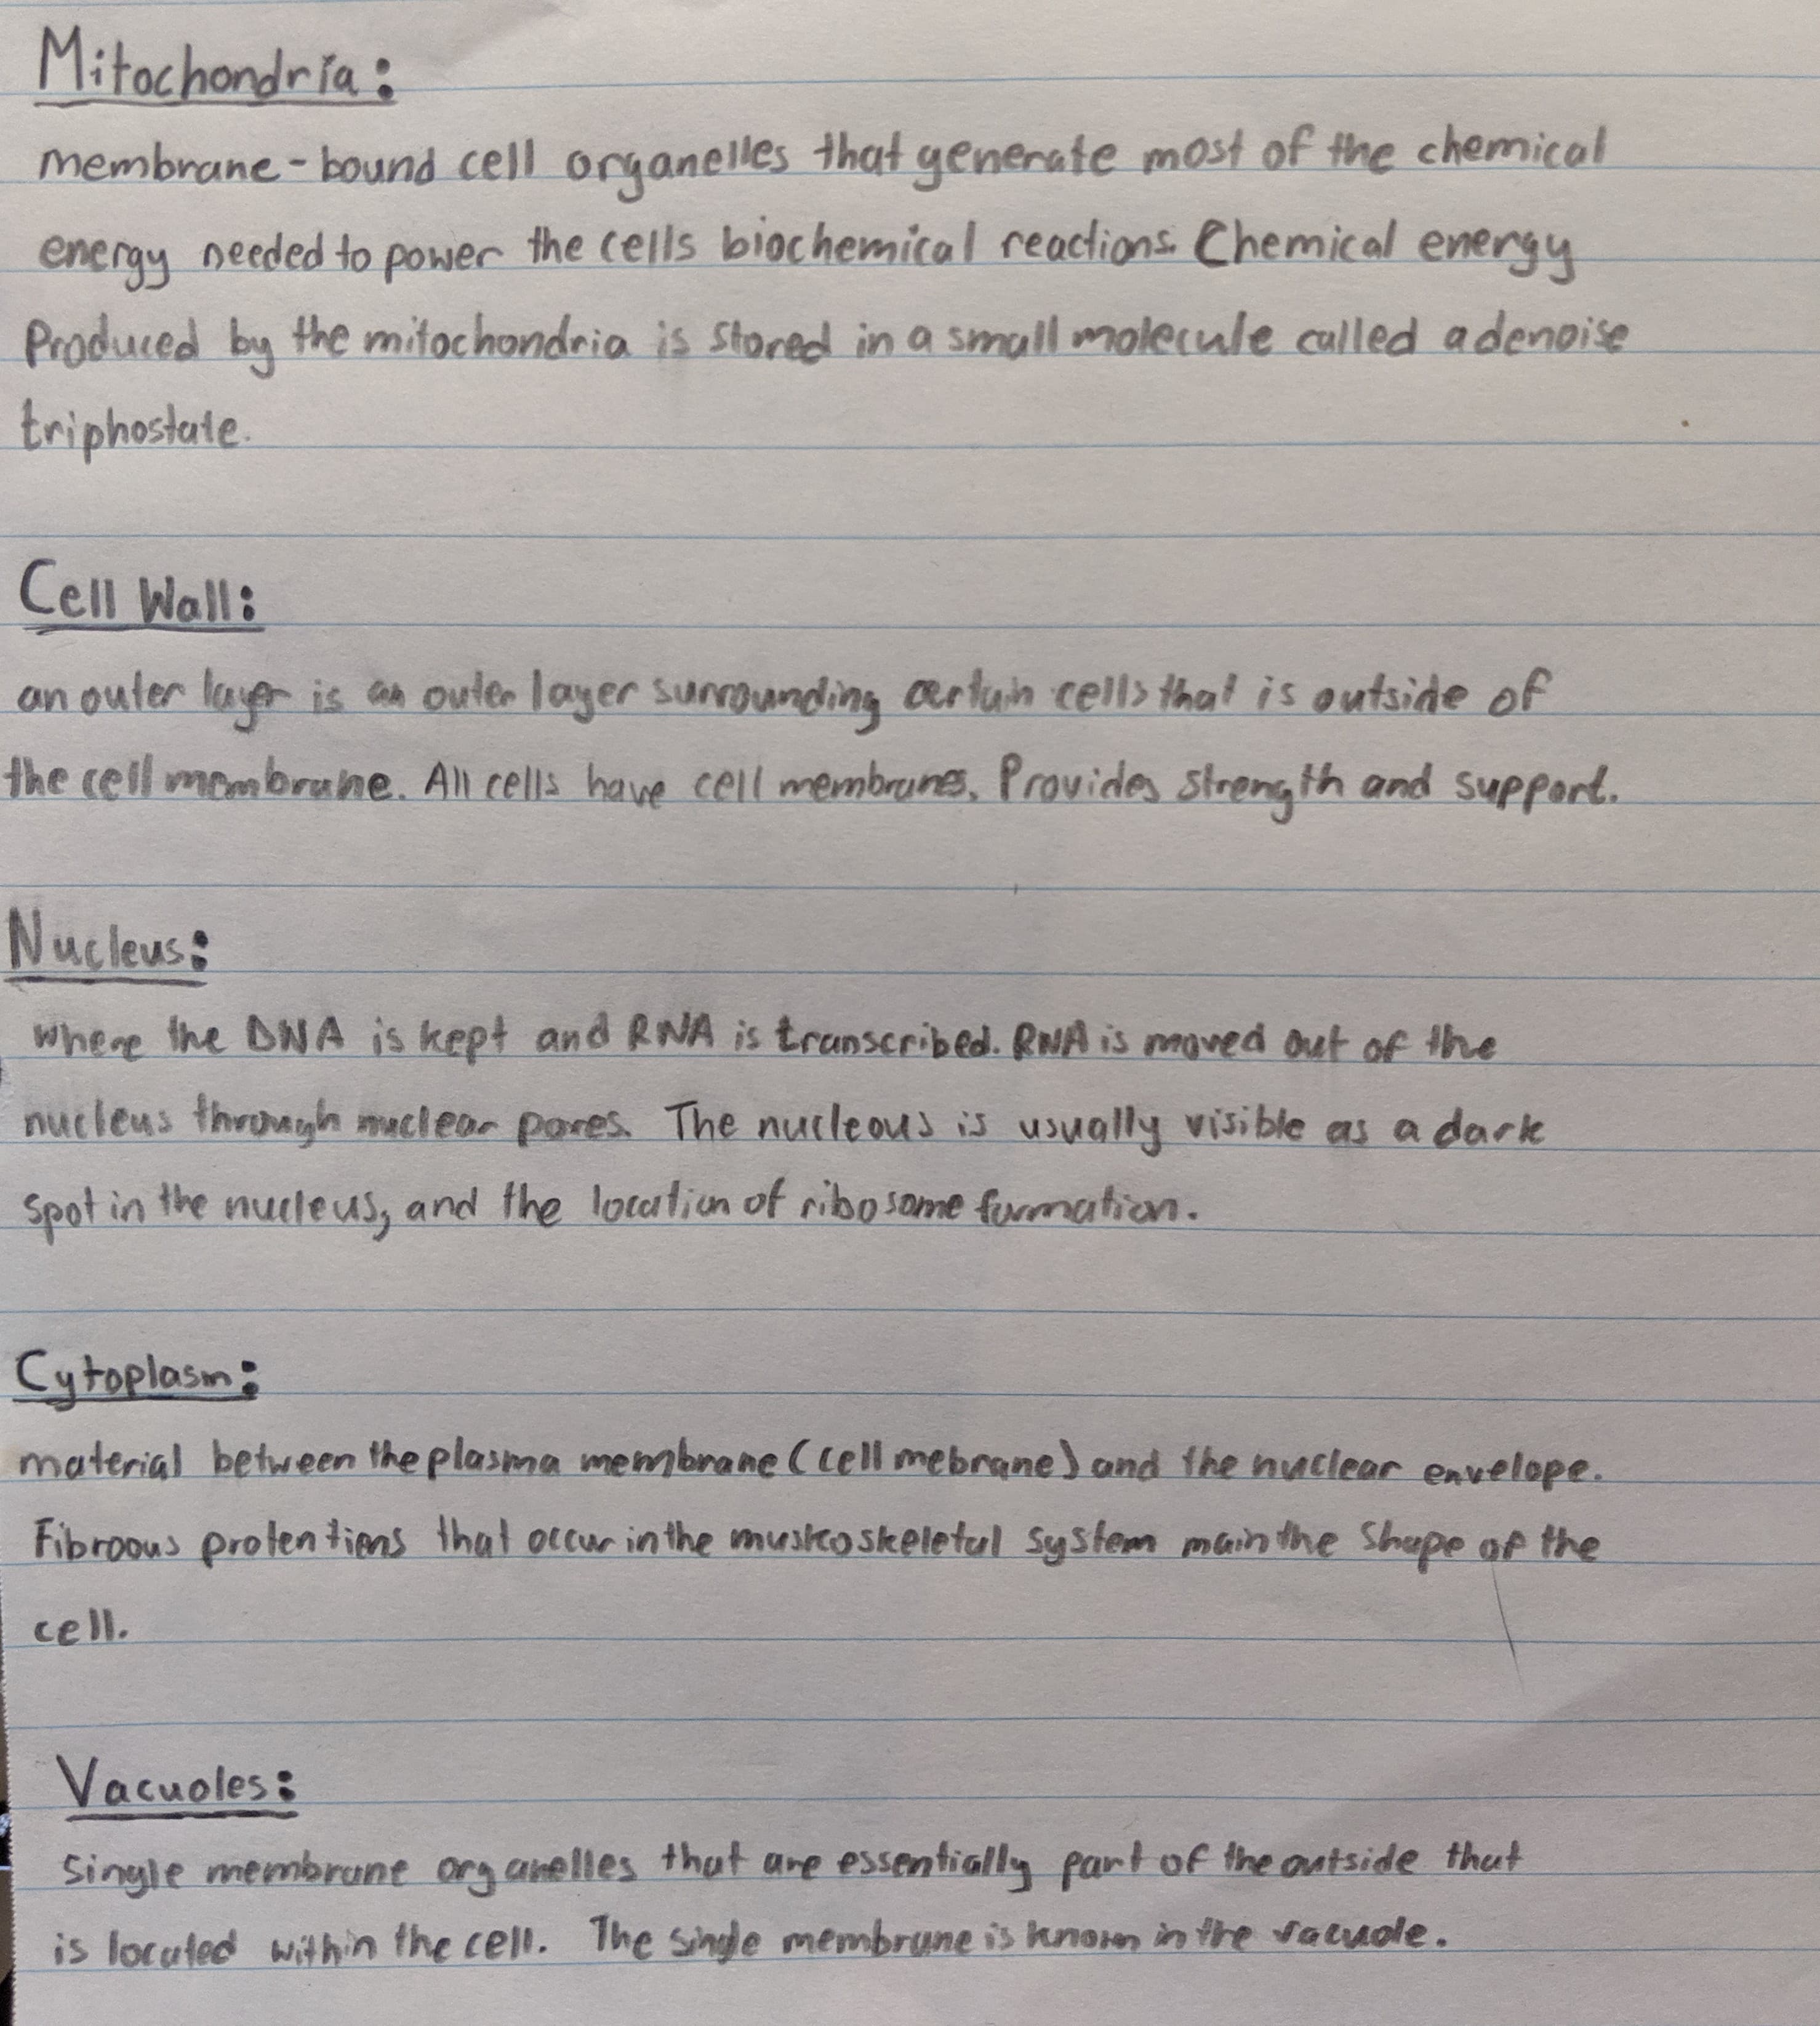 Mitochondria:
membrane-bound cell organelles that generate most of the chemical
energy needed to power the cells biochemical reactions. Chemical energy
Produced by the mitochondria is stored in a small molecule called adenoise
triphostate.
Cell Wall:
an outer layer is an outer layer surrounding certain cells that is outside of
the cell membrane. All cells have cell membranes. Provides strength and support.
Nucleus:
where the DNA is kept and RNA is transcribed. RNA is moved out of the
nucleus through nuclear pores. The nucleous is usually visible as a dark
spot in the nucleus, and the location of ribosome formation.
Cytoplasm:
material between the plasma membrane (cell mebrane) and the nuclear envelope.
Fibroous protentions that occur in the muskoskeletal system main the shape of the
cell.
Vacuoles:
single membrane organelles that are essentially part of the outside that
is located within the cell. The single membrane is known in the vacuole.